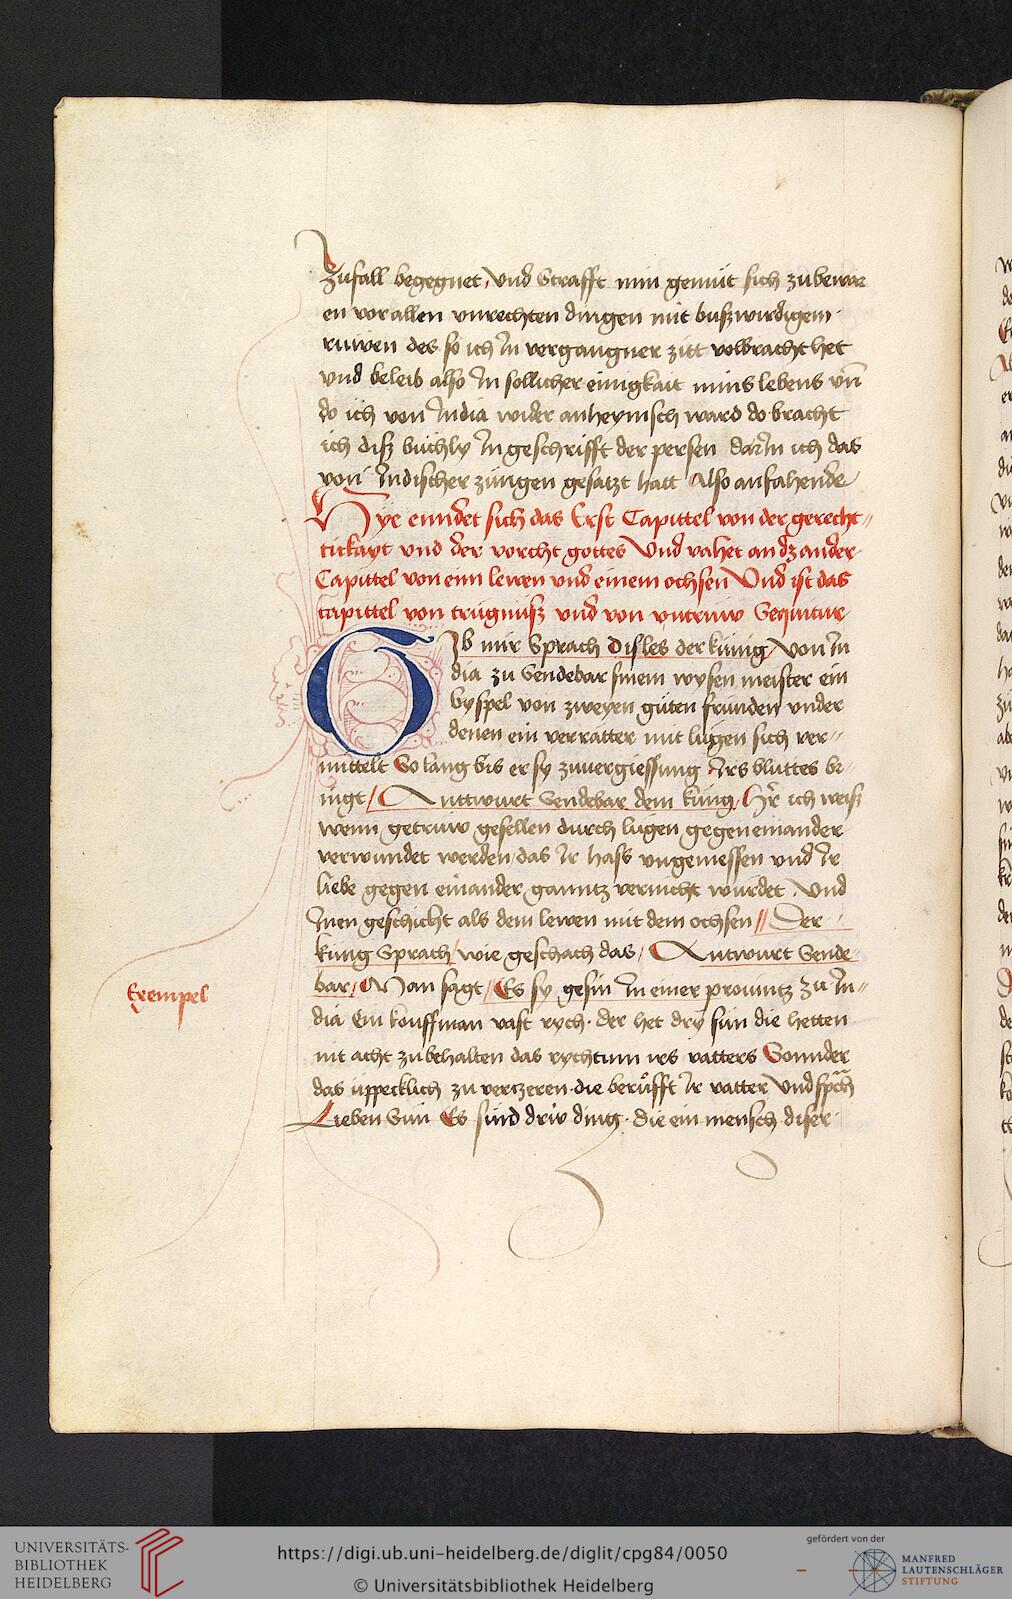 Zufall begegnet, vnd Strafft min gemüt sich zu bewar
en vor allen vnrechten dingen mit buszwirdigem
ruwen des so ich In vergangner zitt volbracht het
vnd beleib also In sollicher einigkait mins lebens vn̄
do ich von India wider anheymisch ward do bracht
ich disz büchly In geschrifft der persen dar In ich das
von Indischer züngen gesatzt hatt Also anfahende
Hye enndet sich das Erst Capittel von der gerecht-
tickayt vnd der vorcht gottes Vnd vahet an dz ander
Capittel von eim lewen vnd einem ochsen Vnd ist das
capittel von trügnüsz vnd von vntruw Sequitur
Gib mir Sprach Disles der künig, Von In
dia zu Sendebar sinem wysen meister ein
byspel von zweyen güten fründen vnder
denen ein verratter mit lugen sich ver-
mittelt So lang bis er sy zuuergiessung Irs bluttes be-
ingt / Anttwurt Sendebar dem küng, Hr̄ ich weisz
wenn getruw gesellen durch lugen gegeneinander
verwundet werden, das Ir hass vngemessen vnd Ir
liebe gegen einander ganntz vernicht würdet, Vnd
Inen geschicht als dem lewen mit dem ochsen // Der
küng Sprach / wie geschach das / Antwurt Sende-
bar / Man sagt / Es sy gesin In einer prouintz zu In-
Exempel
dia Ein kouffman vast rych, der het dry sün die hetten
nit acht zubehalten das rychtum irs vatters Sonnder
das üppecklich zu verzeren, die berüfft Ir vatter Vnd sp̄ch
Lieben Sün Es sind driv ding, die ein mensch diser
UNIVERSITÄTS-
BIBLIOTHEK
HEIDELBERG
https://digi.ub.uni-heidelberg.de/diglit/cpg84/0050
© Universitätsbibliothek Heidelberg
gefördert von der
MANFRED
LAUTENSCHLÄGER
STIFTUNG